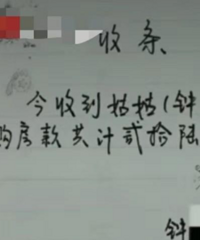 收条
今收到姑姑(钟
购房款共计贰拾陆
钟